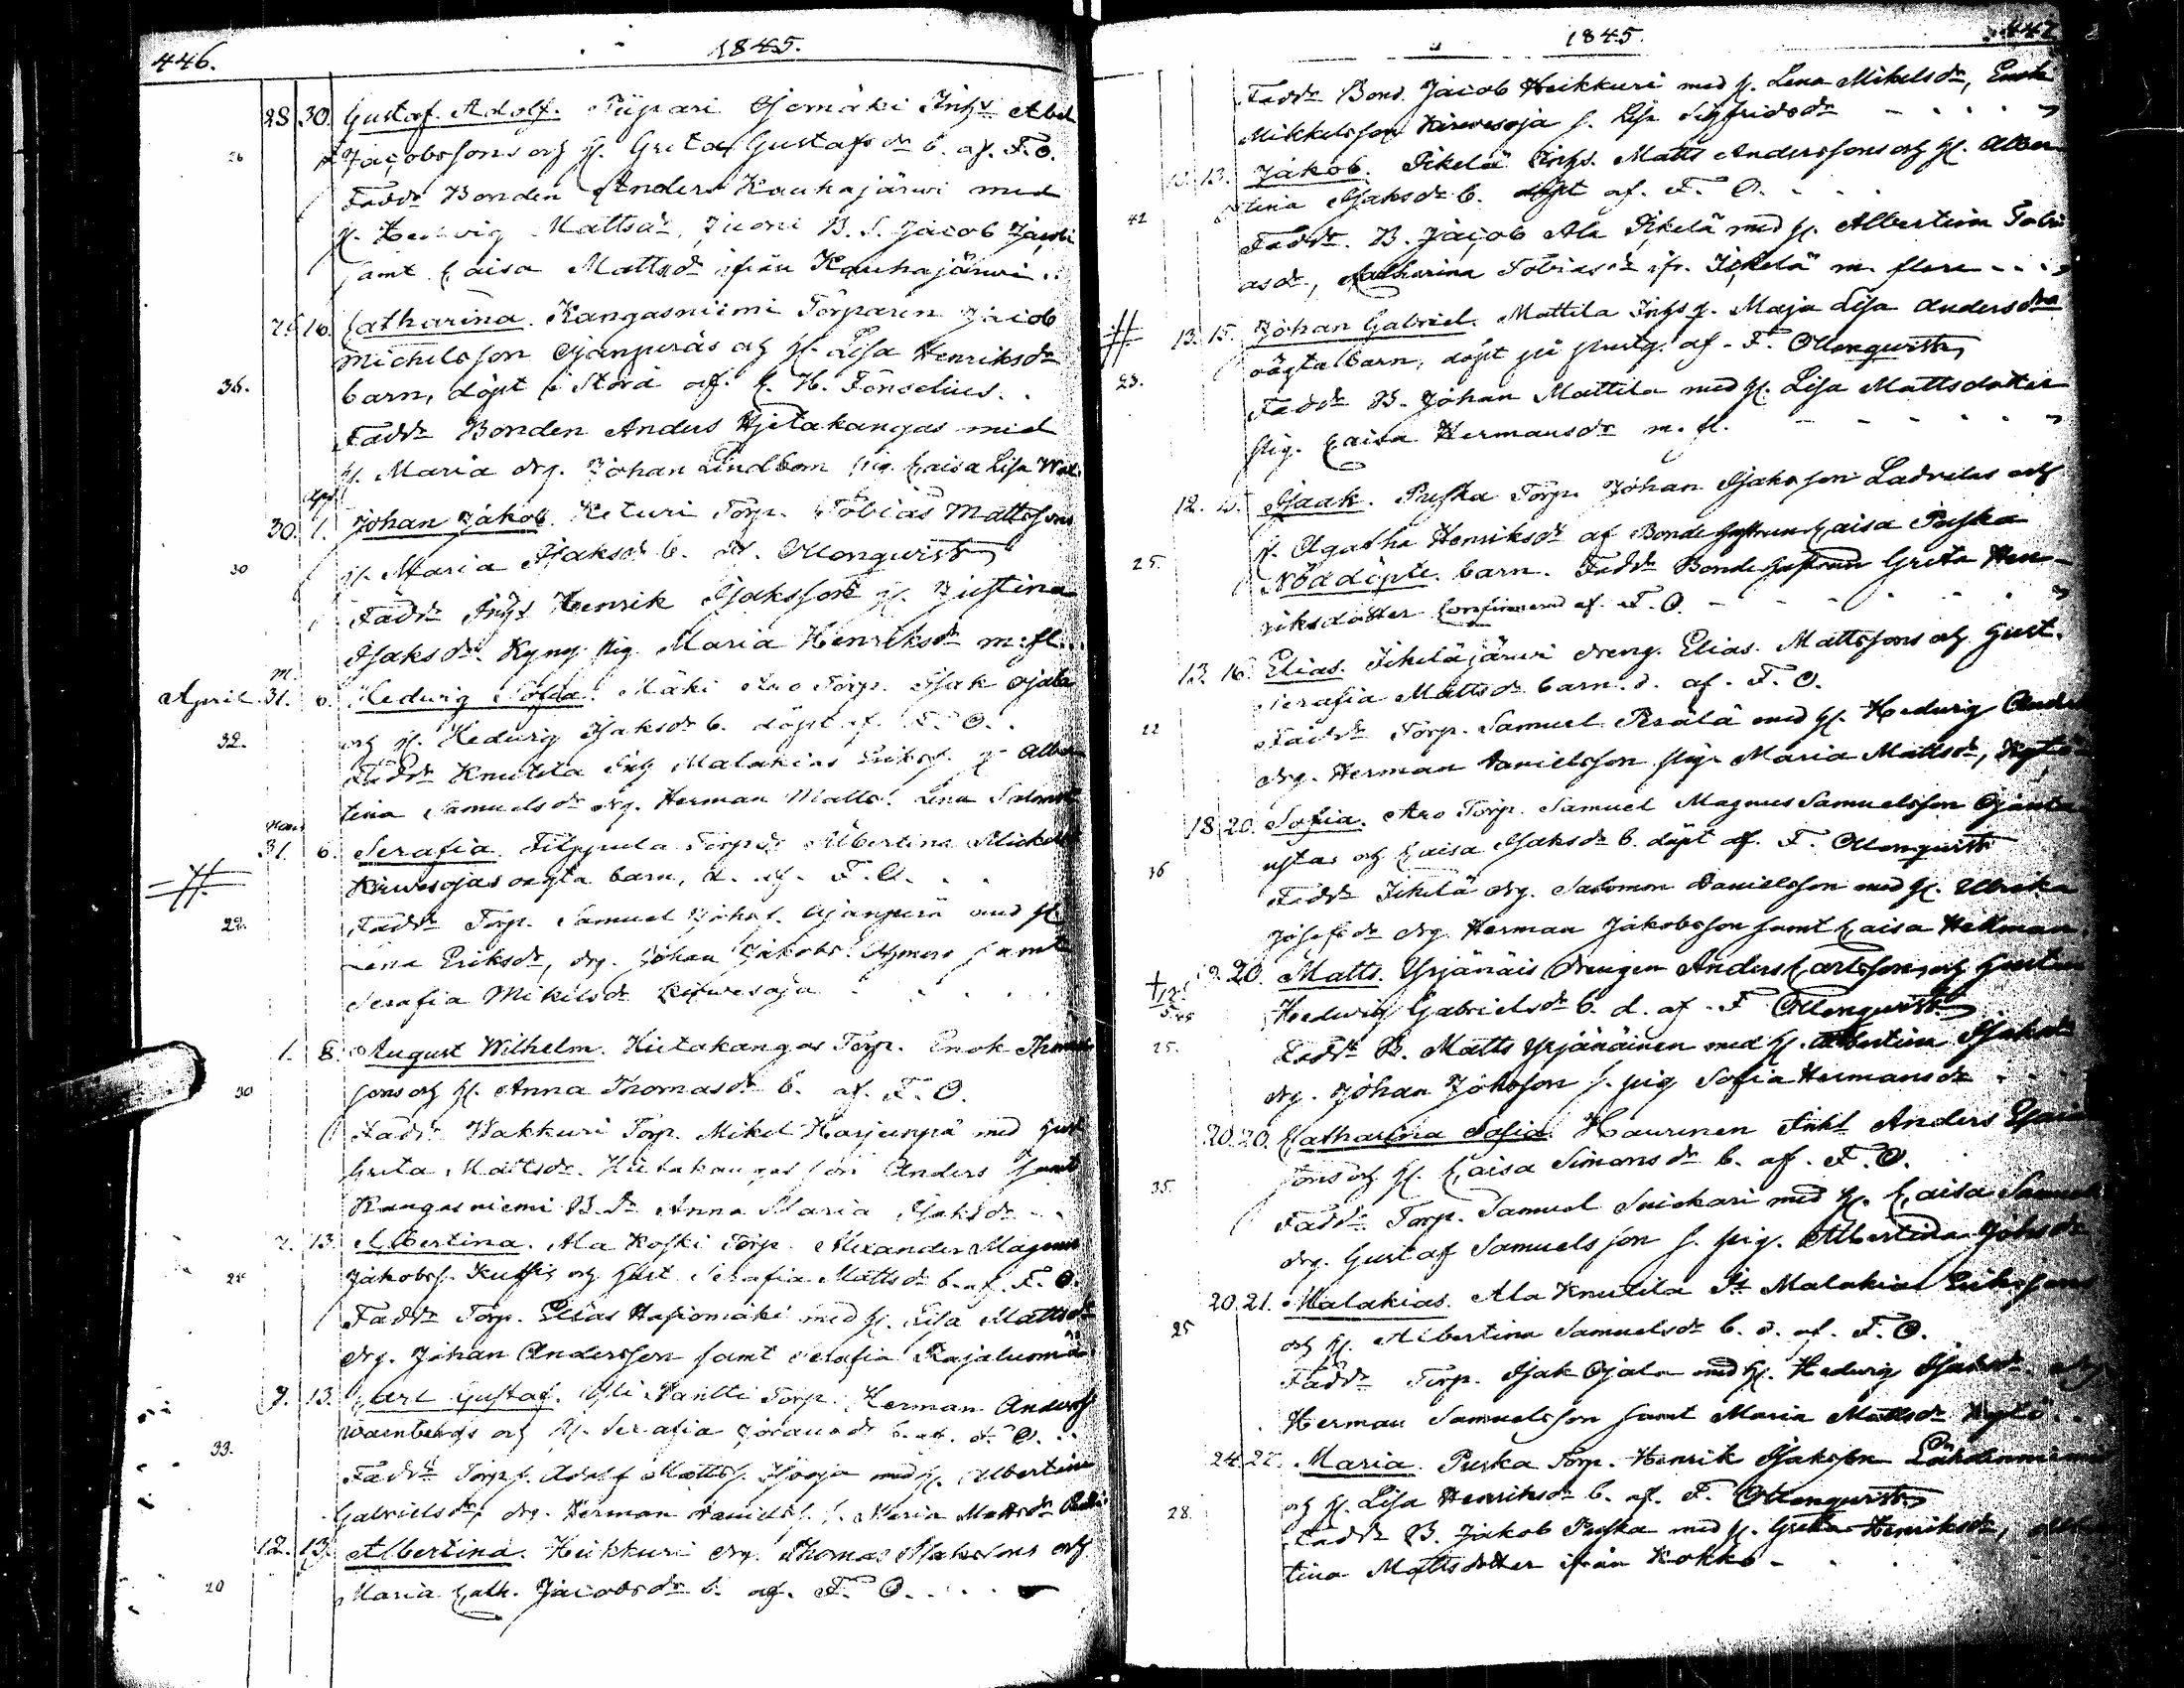 446.
1845.
28 30. Gustaf Adolf. Piipari Ojemäki Inhs Abel
26 Jacobssons och h. Greta Gustafsdr b. af. F. O.
Faddr Bonden Anders Kauhajärwi med
h. Hedvig Mattsdr, Juoni B. S. Jacob Jacobs
samt Caisa Mattsdr ifrån Kauhajärwi..
16. Catharina. Kangasniemi Torparen Jacob
Michelsson Ojanperäs och h. Lisa Henriksdr
36. barn, döpt i Storå af. C. H. Fonselius.
Faddr Bonden Anders Hietakangas med
h. Maria drg. Johan Lindbom pig. Caisa Lisa
Apr
30. 1. Johan Jakob. Keturi Torp. Tobias Mattssons
30 h. Maria Isaksdr b. af. Ollonqwist
Faddr Inhs Henrik Isaksson h. Justina
Isaksdr. Kyny pig. Maria Henriksdr m. fl..
April M. 31. 6. Hedwig Sofia. Mäki Aro Torp. Isak Ojala
32. och h. Hedwig Isaksdr b. döpt af. F. O..
Faddr Knutila Inhs Malakias Eriks. h. Alber
tina Samuelsdr drg. Herman Matts. Lena
Mars
31. 6. Serafia. Filppula Torpdr Albertina Mickelsdr
Kirwesojas oägta barn, d. af. F. O. . .
22. Faddr Torp. Samuel Johs. Ojanperä med h.
Lena Eriksdr, drg. Johan Jakobs. samt
Serafia Mikelsdr Kirwesoja
1. 8. August Wilhelm. Hietakangas Torp. Enok Thomas
30 sons och h. Anna Thomasdr b. af. F. O.
Faddr Wakkuri Torp. Mikel Harjunpä med hust
Greta Mattsdr. Hietakangas son Anders samt
Kangasniemi B. Dr Anna Maria Isaksdr - -
7. 13. Albertina. Ala Koski Torp. Alexander Magnus
Jakobss. och hust Serafia Mattsdr b. af. F. O.
Faddr Torp. Elias Hapiomäki med h. Lisa Mattsdr
drg. Johan Andersson samt Serafia Rajaluoma
9. 13. Carl Gustaf. Yli Pantti Torp. Herman Anderss
Warnbergs och h. Serafia Göransdr b. af. F. O. ..
33. Faddr Torps. Adolf Matts. med h. Albertina
Gabrielsdr, drg. Herman Daniels. s. Maria Mattsdr
12. 13. Albertina. Heikkuri drg. Thomas Isakssons och
20 Maria Cath. Jacobsdr b. af. F. O. . . .
1845.
447
Faddr Bond. Jacob Heikkuri med h. Lena Mikelsdr, Enok
Mikkelsson Kirwesoja s. Lisa Sigfridsdr - - - -
13. Jakob. Ikelä Inhs. Matts Anderssons och h. Alber
42 tina Isaksdr b. döpt af. F. O. - - -
Faddr. B. Jacob Ala Ikelä med h. Albertina Tobi
asdr, Catharina Tobiasdr ifr. Ikelä m. flere - - -
13. 15. Johan Gabriel. Mattila Inhs p. Maja Lisa Andersdrs
oägta barn, döpt på prstg. af. F. Ollonqwist
23. Faddr B. Johan Mattila med h. Lisa Mattsdotter
pig. Caisa Hermansdr m. fl. - - - -
12. Isaak. Puska Torp. Johan Isaksson Ladvelas och
h. Agatha Henriksdr af Bondehustrun Caisa Puska
25. Nöddöpte barn. Faddr Bondehustrun Greta Hen-
riksdotter Confirmerad af. F. O. - - - -
13. 16. Elias. Ikeläjärwi dreng. Elias. Mattssons och hust.
Serafia Mattsdr barn. d. af. F. O.
22 Faddr Torp. Samuel Perälä med h. Hedwig
drg. Herman Danielsson pig. Maria Mattsdr,
18. 20. Sofia. Aro Torp. Samuel Magnus Samuelsson Ojanta
ustas och Caisa Isaksdr b. döpt af. F. Ollonqwist
36 Faddr Ikelä drg. Salomon Danielsson med h. Ulrika
Josefsdr drg. Herman Jakobsson samt Caisa Hellman.
20. Matts. Yrjänäis Drengen Anders Carlssons och hustru
Hedwig Gabrielsdr b. d. af. F. Ollonqwist
25. Faddr B. Matts Yrjänäinen med h. Albertina Isaksdr
drg. Johan Johsson s. pig Sofia Hermansdr - - -
20. 20. Catharina Sofia. Haurinen Inhs Anders
sons och h. Caisa Simonsdr b. af. F. O.
35. Faddr. Torp. Samuel Snickari med h. Caisa Samuels
drg. Gustaf Samuelsson s. pig. Albertina Johsdr
20. 21. Malakias. Ala Knutila Is Malakias Erikssons
25 och h. Albertina Samuelsdr b. d. af. F. O.
Faddr Torp. Isak Ojala med h. Hedwig Isaksdr drg
Herman Samuelsson samt Maria Mattsdr Kyntö . .
24. 27. Maria. Puska Torp. Henrik Isaksson Lahdenniemi
28. och h. Lisa Henriksdr b. af. F. Ollonqwist
Faddr B. Jakob Puska med h. Greta Henriksdr, Alber
tina Mattsdotter ifrån Kokko - -